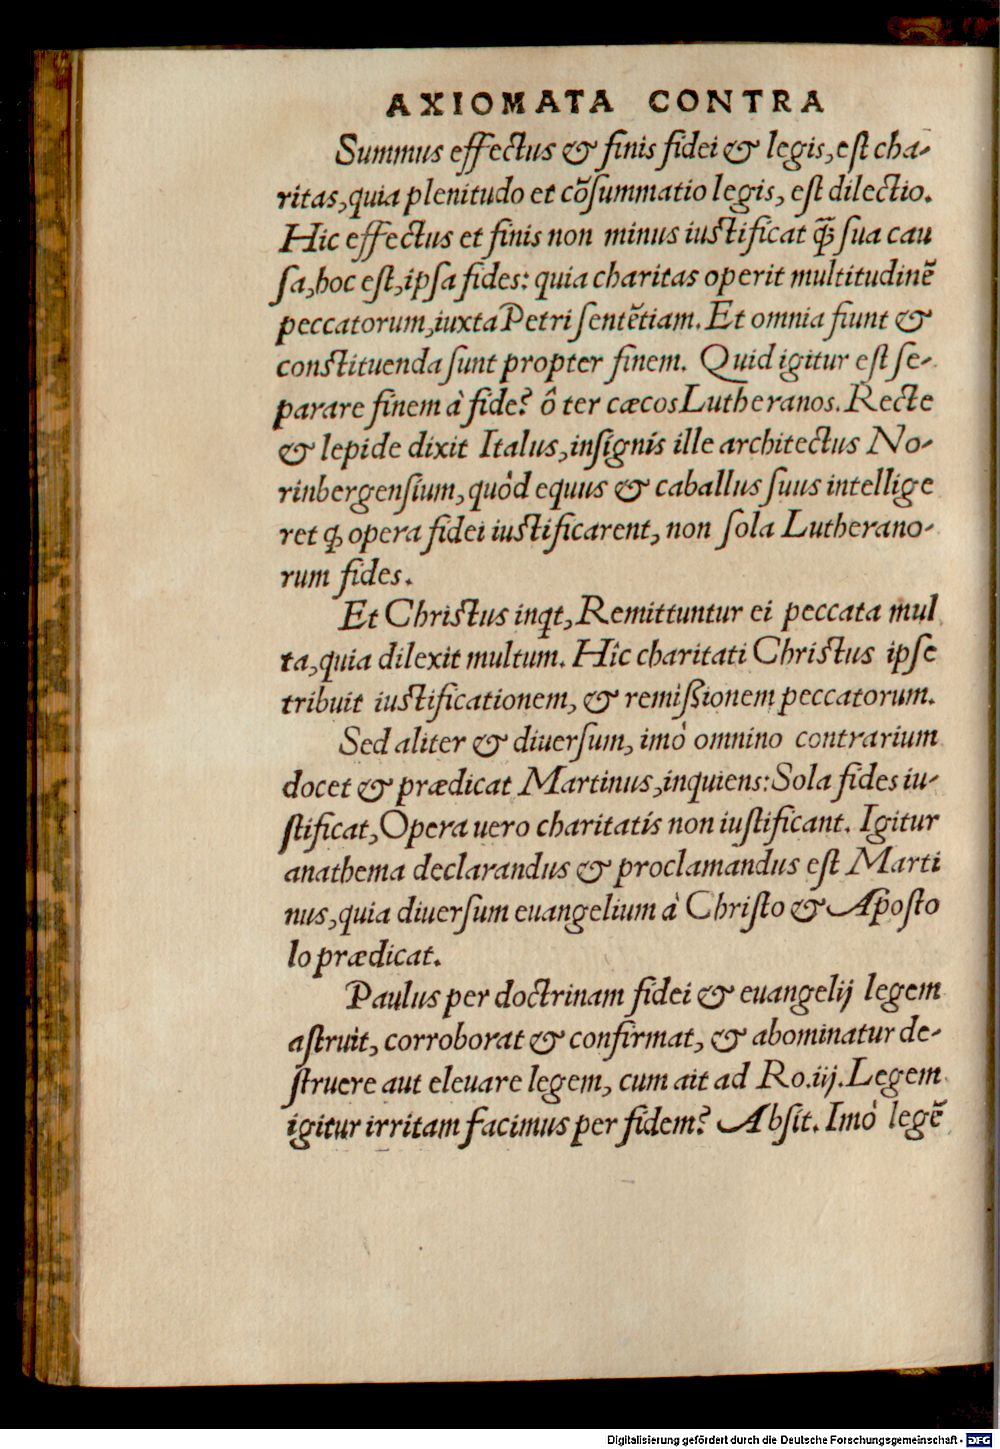 AXIOMATA CONTRA
Summus effectus & finis fidei & legis, est cha-
ritas, quia plenitudo et cõsummatio legis, est dilectio.
Hic effectus et finis non minus iustificat q̃ȝ sua cau
sa, hoc est, ipsa fides: quia charitas operit multitudinẽ
peccatorum, iuxta Petri sentẽtiam. Et omnia fiunt &
constituenda sunt propter finem. Quid igitur est se-
parare finem à fide? ô ter cæcos Lutheranos. Recte
& lepide dixit Italus, insignis ille architectus No-
rinbergensium, quòd equus & caballus suus intellige
ret ꝙ opera fidei iustificarent, non sola Lutherano-
rum fides.
Et Christus inqt, Remittuntur ei peccata mul
ta, quia dilexit multum. Hîc charitati Christus ipse
tribuit iustificationem, & remißionem peccatorum.
Sed aliter & diuersum, imò omnino contrarium
docet & prædicat Martinus, inquiens: Sola fides iu-
stificat, Opera uero charitatis non iustificant. Igitur
anathema declarandus & proclamandus est Marti
nus, quia diuersum euangelium à Christo & Aposto
lo prædicat.
Paulus per doctrinam fidei & euangelij legem
astruit, corroborat & confirmat, & abominatur de-
struere aut eleuare legem, cum ait ad Ro. iij. Legem
igitur irritam facimus per fidem? Absit. Imò legẽ
Digitalisierung gefördert durch die Deutsche Forschungsgemeinschaft - DFG